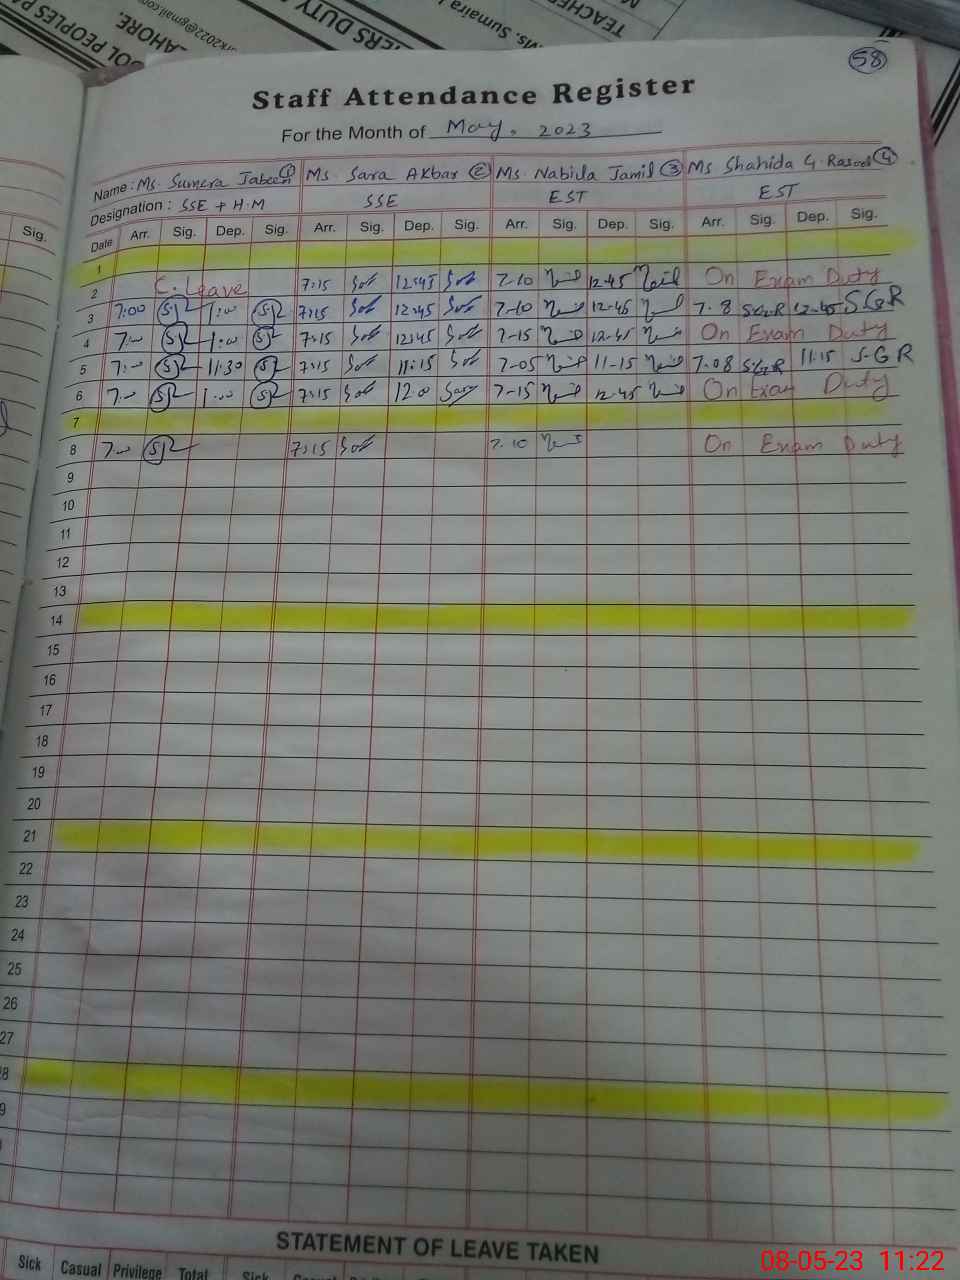 OOL PEOPLES
LAHORE.
2022@gmail.com
ERS DUTY
Ms. Sumaira
TEACHE
58
Staff Attendance Register
For the Month of May. 2023
Name: Ms. Sumera Jabeen 1 Ms. Sara Akbar 2 Ms. Nabila Jamil 3 Ms Shahida G. Rasool 4
Designation: SSE + H.M SSE EST EST
Sig.
Date Arr. Sig. Dep. Sig. Arr. Sig. Dep. Sig. Arr. Sig. Dep. Sig. Arr. Sig. Dep. Sig.
1
2 C. Leave 7:15 12:45 7-10 12-45 On Exam Duty
3 7:00 1:00 7:15 12:45 7-10 12-45 7.8 S.G.R 12-45 S.G.R
4 7:00 1:00 7:15 12:45 7-15 12-45 On Exam Duty
5 7:00 11:30 7:15 11:15 7-05 11-15 7.08 S.G.R 11:15 S-G R
6 7:00 1:00 7:15 12:0 7-15 12-45 On Exam Duty
7
8 7:00 7:15 7.10 On Exam Duty
9
10
11
12
13
14
15
16
17
18
19
20
21
22
23
24
25
26
27
8
9
STATEMENT OF LEAVE TAKEN
Sick Casual Privilege Total Sick
08-05-23 11:22